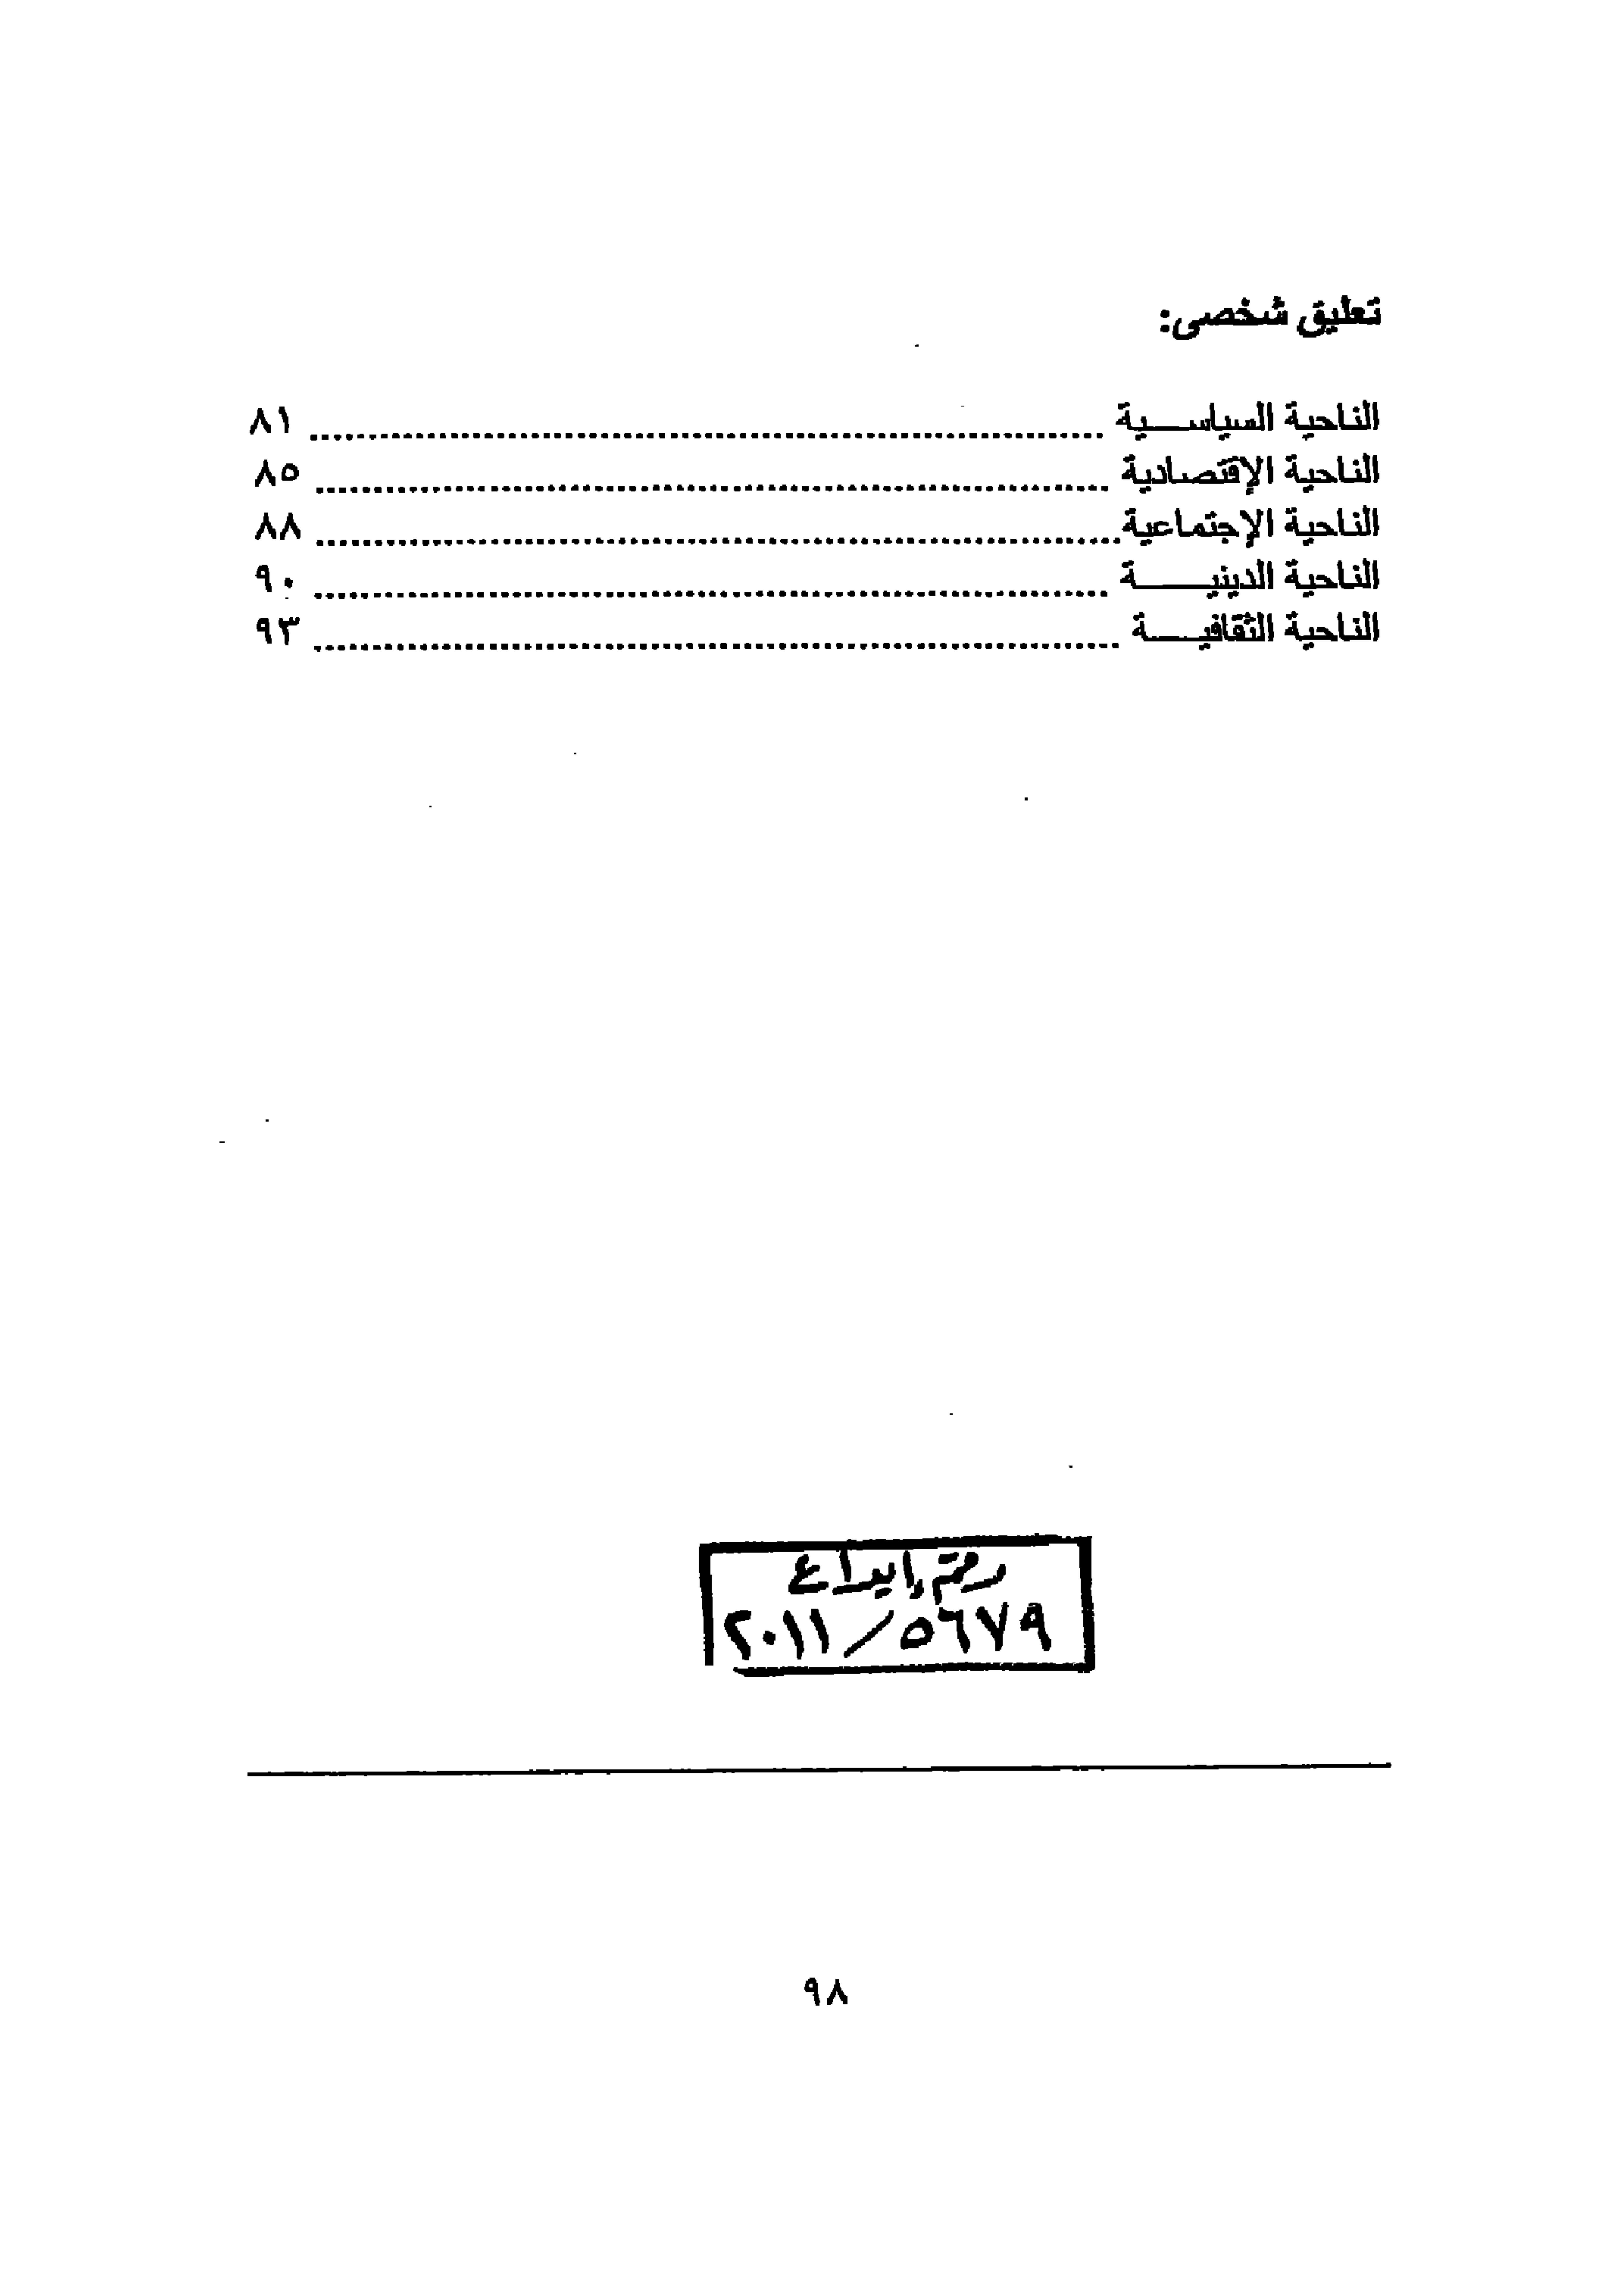 تعليق شخصى:
الناحية السياســـية ........................ ٨١
الناحية الإقتصادية ........................ ٨٥
الناحية الإجتماعية ........................ ٨٨
الناحية الدينيـــــة ........................ ٩٠
الناحية الثقافيــــة ........................ ٩٣
رقم إيداع
٢٠١١/٥٦٧٩
٩٨